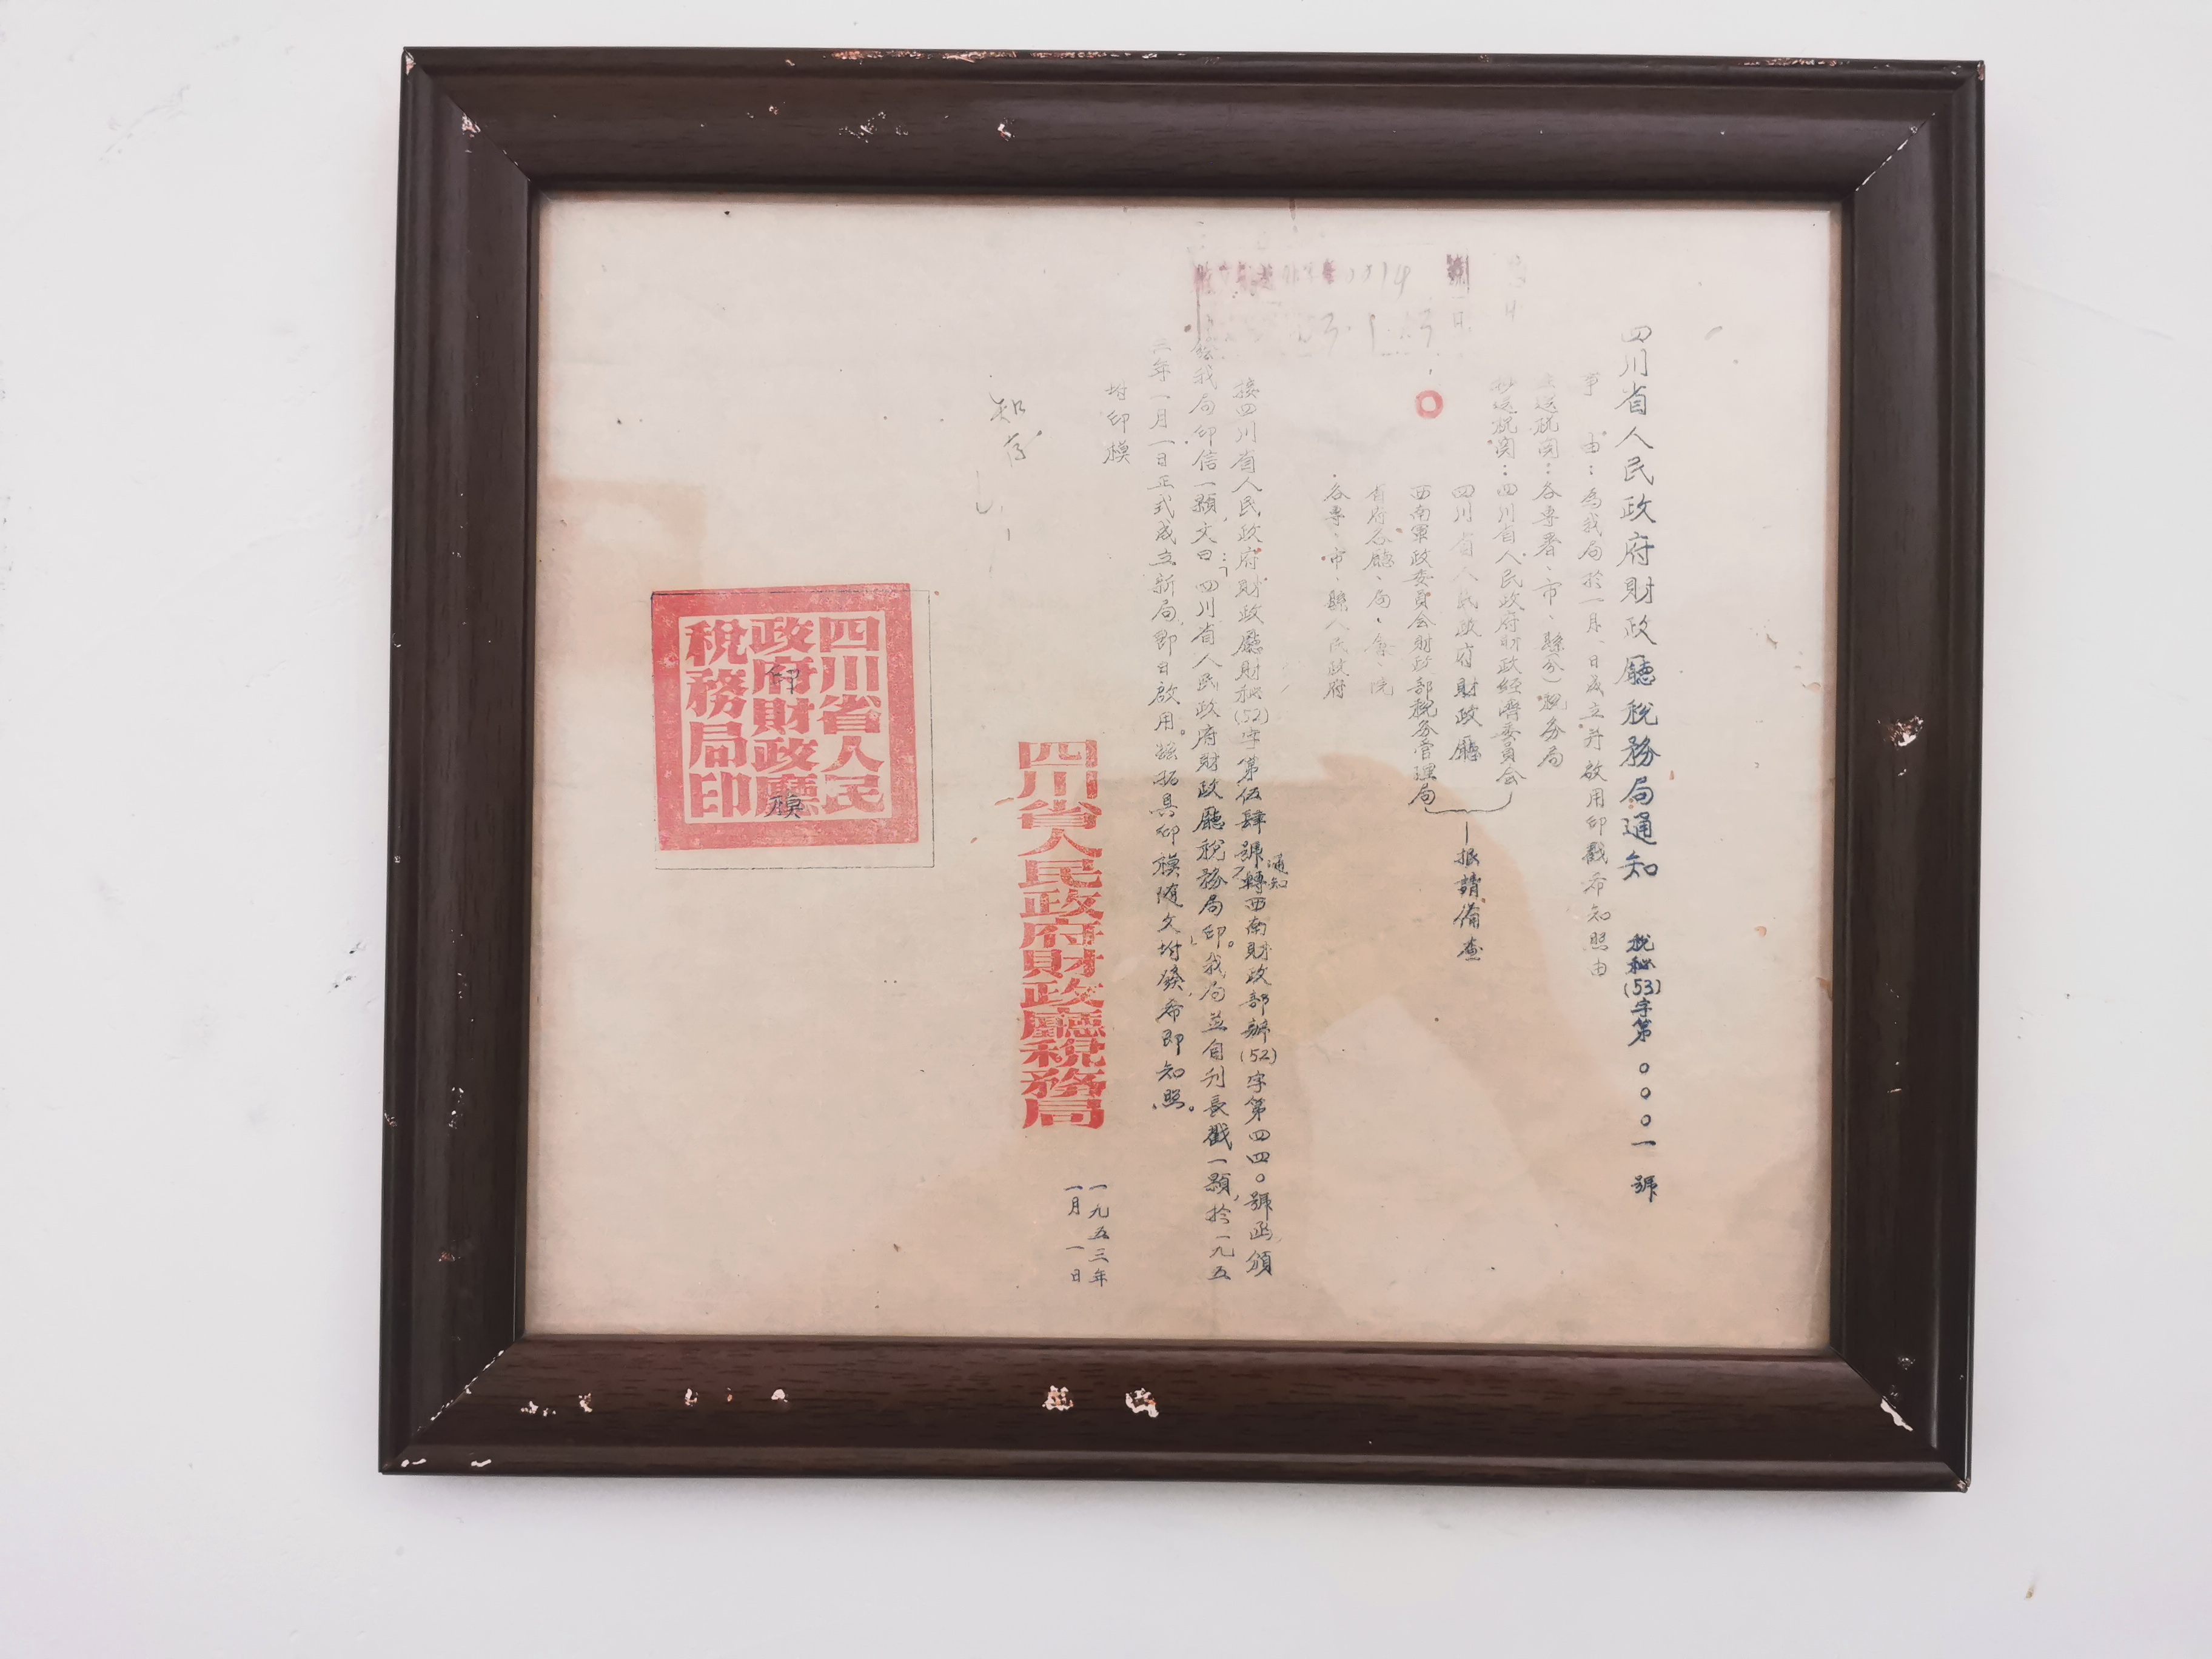 四川省人民政府財政廳稅務局通知 稅秘(53)字第〇〇〇一號
事由：為我局於一月一日成立并啟用印戳希知照由
主送機関：各專署、市、縣(分)稅务局
抄送機関：四川省人民政府財政經濟委員会
四川省人民政府財政廳
西南軍政委員会財政部稅务管理局
報請備查
省府各廳、局、
各專、市、縣人民政府
接四川省人民政府財政廳財秘(52)字第伍肆號通知轉西南財政部辦(52)字第四四〇號函頒
我局印信一顆，文曰：「四川省人民政府財政廳稅務局印」。我局並自刋長戳一顆，於一九五
三年一月一日正式成立新局，即日啟用。茲拓具印模随文坿發，希即知照。
坿印模
四川省人民政府財政廳稅務局
一九五三年
一月一日
知
四川省人民
政府財政廳
稅務局印
印模